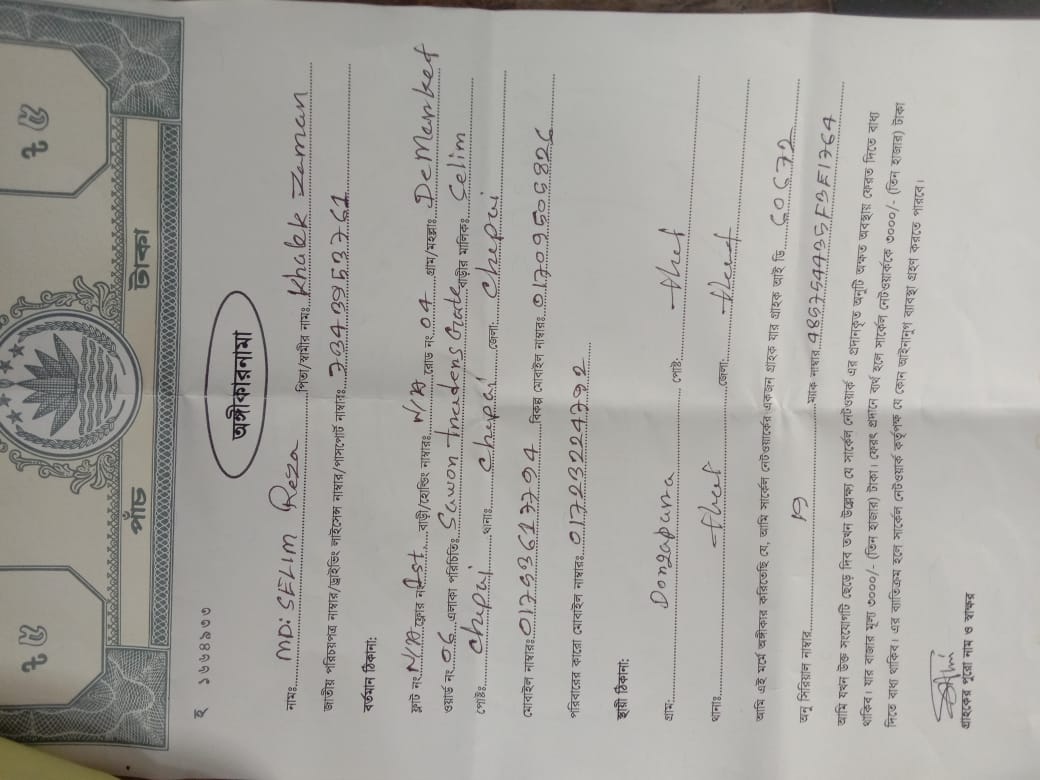 ৳ ৫
৳ ৫
পাঁচ টাকা
হ ১৬৬৪৯৩৩
অঙ্গীকারনামা
নামঃ MD: SELIM Reza পিতা/স্বামীর নামঃ Khalek Zaman
জাতীয় পরিচয়পত্র নাম্বার/ড্রাইভিং লাইসেন্স নাম্বার/পাসপোর্ট নাম্বারঃ 733439533761
বর্তমান ঠিকানা:
ফ্লাট নং N/A ফ্লোর নং 1st বাড়ী/হোল্ডিং নাম্বারঃ N/A রোড নং 04 গ্রাম/মহল্লাঃ De Market
ওয়ার্ড নং 06 এলাকা পরিচিতিঃ Sawon traders বাড়ীর মালিকঃ Selim
পোষ্টঃ Chepai থানাঃ Chepai জেলা: Chepai
মোবাইল নাম্বারঃ 01793617794 বিকল্প মোবাইল নাম্বারঃ 01709506826
পরিবারের কারো মোবাইল নাম্বারঃ 01723224792
স্থায়ী ঠিকানা:
গ্রাম: Dongapara পোষ্ট:
থানাঃ জেলা:
আমি এই মর্মে অঙ্গীকার করিতেছি যে, আমি সার্কেল নেটওয়ার্কের একজন গ্রাহক যার গ্রাহক আই ডি C0672
অনু সিরিয়াল নাম্বার ম্যাক নাম্বার 485754435F3E1764
আমি যখন উক্ত সংযোগটি ছেড়ে দিব তখন উল্লেক্ষ্য যে সার্কেল নেটওয়ার্ক এর প্রদানকৃত অনুটি অক্ষত অবস্থায় ফেরত দিতে বাধ্য
থাকিব। যার বাজার মূল্য ৩০০০/- (তিন হাজার) টাকা। ফেরৎ প্রদানে ব্যর্থ হলে সার্কেল নেটওয়ার্ককে ৩০০০/- (তিন হাজার) টাকা
দিতে বাধ্য থাকিব। এর ব্যাতিক্রম হলে সার্কেল নেটওয়ার্ক কর্তৃপক্ষ যে কোন আইনানুগ ব্যাবস্থা গ্রহণ করতে পারবে।
গ্রাহকের পুরো নাম ও স্বাক্ষর